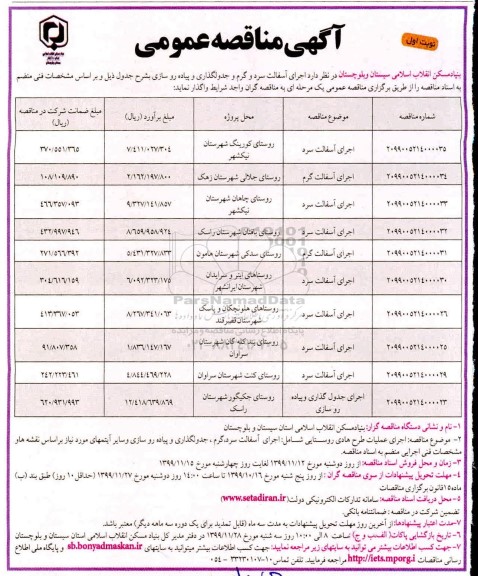 نوبت اول
آگهی مناقصه عمومی
بنیاد مسکن انقلاب اسلامی سیستان وبلوچستان در نظر دارد اجرای آسفالت سرد و گرم و جدولگذاری و پیاده رو سازی بشرح جدول ذیل و بر اساس مشخصات فنی منضم
به اسناد مناقصه را از طریق برگزاری مناقصه عمومی یک مرحله ای به مناقصه گران واجد شرایط واگذار نماید:
شماره مناقصه موضوع مناقصه محل پروژه مبلغ برآورد (ریال) مبلغ ضمانت شرکت در مناقصه (ریال)
۲۰۹۹۰۰۵۲۱۴۰۰۰۰۳۵ اجرای آسفالت سرد روستای کورینگ شهرستان نیکشهر ۷/۴۱۱/۰۲۷/۳۰۴ ۳۷۰/۵۵۱/۳۶۵
۲۰۹۹۰۰۵۲۱۴۰۰۰۰۳۴ اجرای آسفالت گرم روستای جلالی شهرستان زهک ۲/۱۶۲/۱۹۷/۸۰۰ ۱۰۸/۱۰۹/۸۹۰
۲۰۹۹۰۰۵۲۱۴۰۰۰۰۳۳ اجرای آسفالت سرد روستای چاهان شهرستان نیکشهر ۹/۳۲۷/۱۴۱/۸۵۷ ۴۶۶/۳۵۷/۰۹۳
۲۰۹۹۰۰۵۲۱۴۰۰۰۰۳۲ اجرای آسفالت سرد روستای بافتان شهرستان راسک ۸/۶۵۹/۹۵۸/۹۲۴ ۴۳۲/۹۹۷/۹۴۶
۲۰۹۹۰۰۵۲۱۴۰۰۰۰۳۱ اجرای آسفالت گرم روستای سدکی شهرستان هامون ۵/۴۳۱/۳۲۷/۸۳۳ ۲۷۱/۵۶۶/۳۹۲
۲۰۹۹۰۰۵۲۱۴۰۰۰۰۳۰ اجرای آسفالت سرد روستاهای ابتر و سرایدان شهرستان ایرانشهر ۶/۰۹۲/۳۲۳/۱۷۵ ۳۰۴/۶۱۶/۱۵۹
۲۰۹۹۰۰۵۲۱۴۰۰۰۰۲۶ اجرای آسفالت سرد روستاهای هلونچکان و پاسک شهرستان قصرقند ۸/۲۶۷/۳۴۱/۰۶۳ ۴۱۳/۳۶۷/۰۵۳
۲۰۹۹۰۰۵۲۱۴۰۰۰۰۲۵ اجرای آسفالت سرد روستای بندکله گان شهرستان سراوان ۱/۸۳۶/۱۴۷/۱۶۷ ۹۱/۸۰۷/۳۵۸
۲۰۹۹۰۰۵۲۱۴۰۰۰۰۲۹ اجرای آسفالت سرد روستای کنت شهرستان سراوان ۴/۸۴۴/۴۶۹/۲۲۸ ۲۴۲/۲۲۳/۴۶۱
۲۰۹۹۰۰۵۲۱۴۰۰۰۰۲۳ اجرای جدول گذاری وپیاده رو سازی روستای جکیگور شهرستان راسک ۱۲/۴۱۸/۶۳۹/۸۶۹ ۶۲۰/۹۳۱/۹۹۳
ParsNamadData
۱- نام و نشانی دستگاه مناقصه گزار: بنیادمسکن انقلاب اسلامی استان سیستان و بلوچستان
۲- موضوع مناقصه: اجرای عملیات طرح هادی روستایی شامل: اجرای آسفالت سردوگرم ، جدولگذاری و پیاده رو سازی وسایر آیتمهای مورد نیاز براساس نقشه هاو
مشخصات فنی اجرایی منضم به اسناد مناقصه.
۳- زمان و محل فروش اسناد مناقصه: از روز دوشنبه مورخ ۱۳۹۹/۱۱/۱۲ لغایت روز چهارشنبه مورخ ۱۳۹۹/۱۱/۱۵
۴- مهلت تحویل پیشنهادات از سوی مناقصه گران : از روز پنج شنبه مورخ ۱۳۹۹/۱۰/۱۶ تا ساعت ۱۴:۰۰ روز دوشنبه مورخ ۱۳۹۹/۱۱/۲۷ (حداقل ۱۰ روز) طبق بند (ب)
ماده۱۵قانون برگزاری مناقصات
۵- محل دریافت اسناد مناقصه: سامانه تدارکات الکترونیکی دولت (www.setadiran.ir)
تضمین شرکت در مناقصه : ضمانتنامه بانکی.
۷-مدت اعتبار پیشنهادها: از آخرین روز مهلت تحویل پیشنهادات به مدت سه ماه (قابل تمدید برای یک دوره سه ماهه دیگر) معتبر باشد.
۶-تاریخ بازگشایی پاکات(الف،ب و ج) ساعت ۸ الی ۱۰:۰۰ روز سه شنبه مورخ ۱۳۹۹/۱۱/۲۸ در دفتر مدیر کل بنیاد مسکن انقلاب اسلامی استان سیستان و بلوچستان
۷-جهت کسب اطلاعات بیشتر می توانید به سایتهای زیر مراجعه نمایید: جهت کسب اطلاعات بیشتر میتوانید به سایتهای sb.bonyadmaskan.ir و پایگاه ملی اطلاع
رسانی مناقصات http://iets.mporg.i مراجعه فرمایید. تلفن تماس:۱۰-۳۳۲۳۰۱۰۷ - ۰۵۴